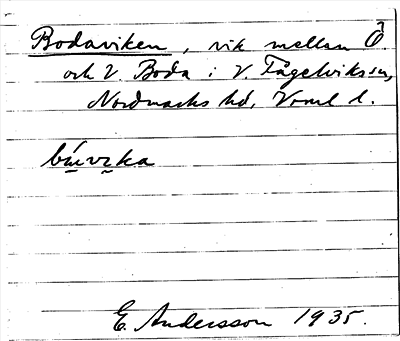 Bodaviken, vik mellan Ö.
och V. Boda i V. Fågelviks sn,
Nordmarks hd, Vrml. l.
E. Andersson 1935.